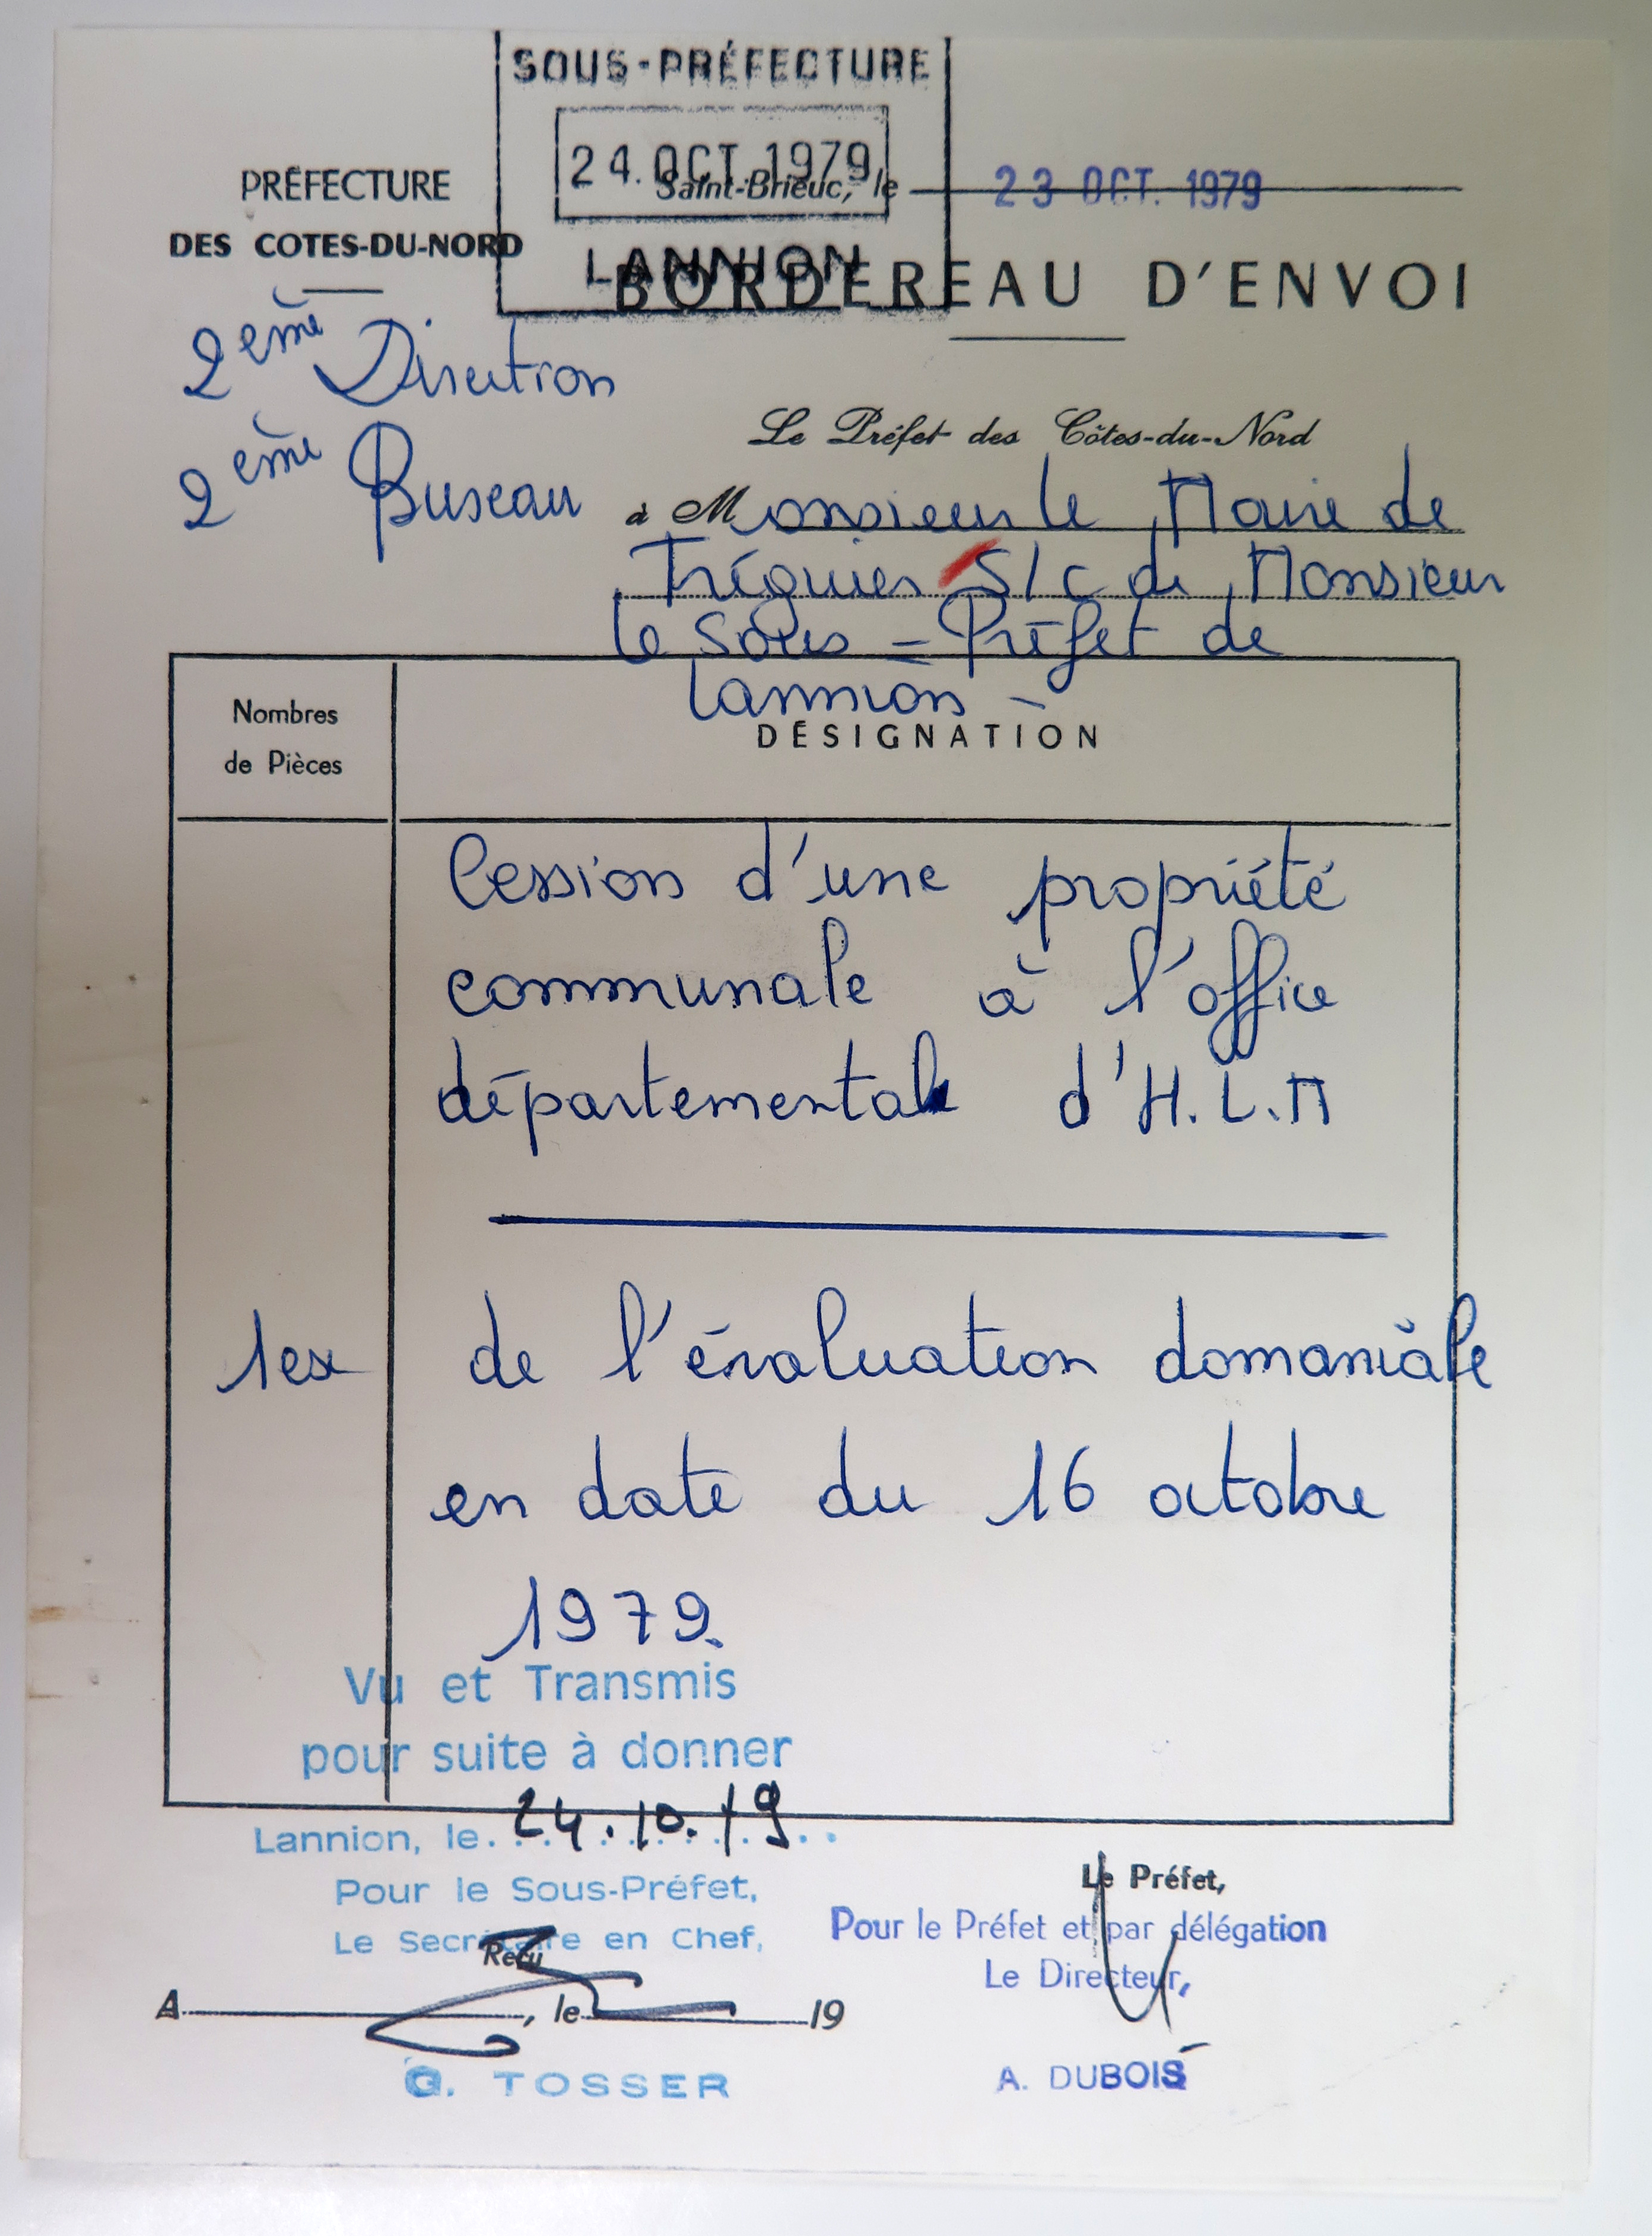 SOUS-PRÉFECTURE
24. OCT. 1979
LANNION
PRÉFECTURE
DES COTES-DU-NORD
Saint-Brieuc, le 23 OCT. 1979
BORDEREAU D'ENVOI
2ème Direction
2ème Bureau
Le Préfet des Côtes-du-Nord
à Monsieur le Maire de
Tréguier S/c de Monsieur
le Sous-Préfet de
Lannion -
Nombres
de Pièces
DÉSIGNATION
Cession d'une propriété
communale à l'office
départemental d'H.L.M
1ex de l'évaluation domaniale
en date du 16 octobre
1979.
Vu et Transmis
pour suite à donner
Lannion, le 24.10.79
Pour le Sous-Préfet,
Le Secrétaire en Chef,
Reçu
A , le 19
G. TOSSER
Le Préfet,
Pour le Préfet et par délégation
Le Directeur,
A. DUBOIS